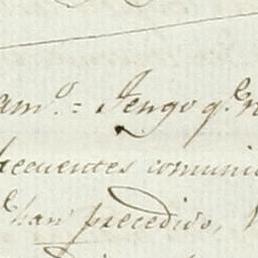 am.º = Tengo q.e
frecuentes comunic
han precedido,